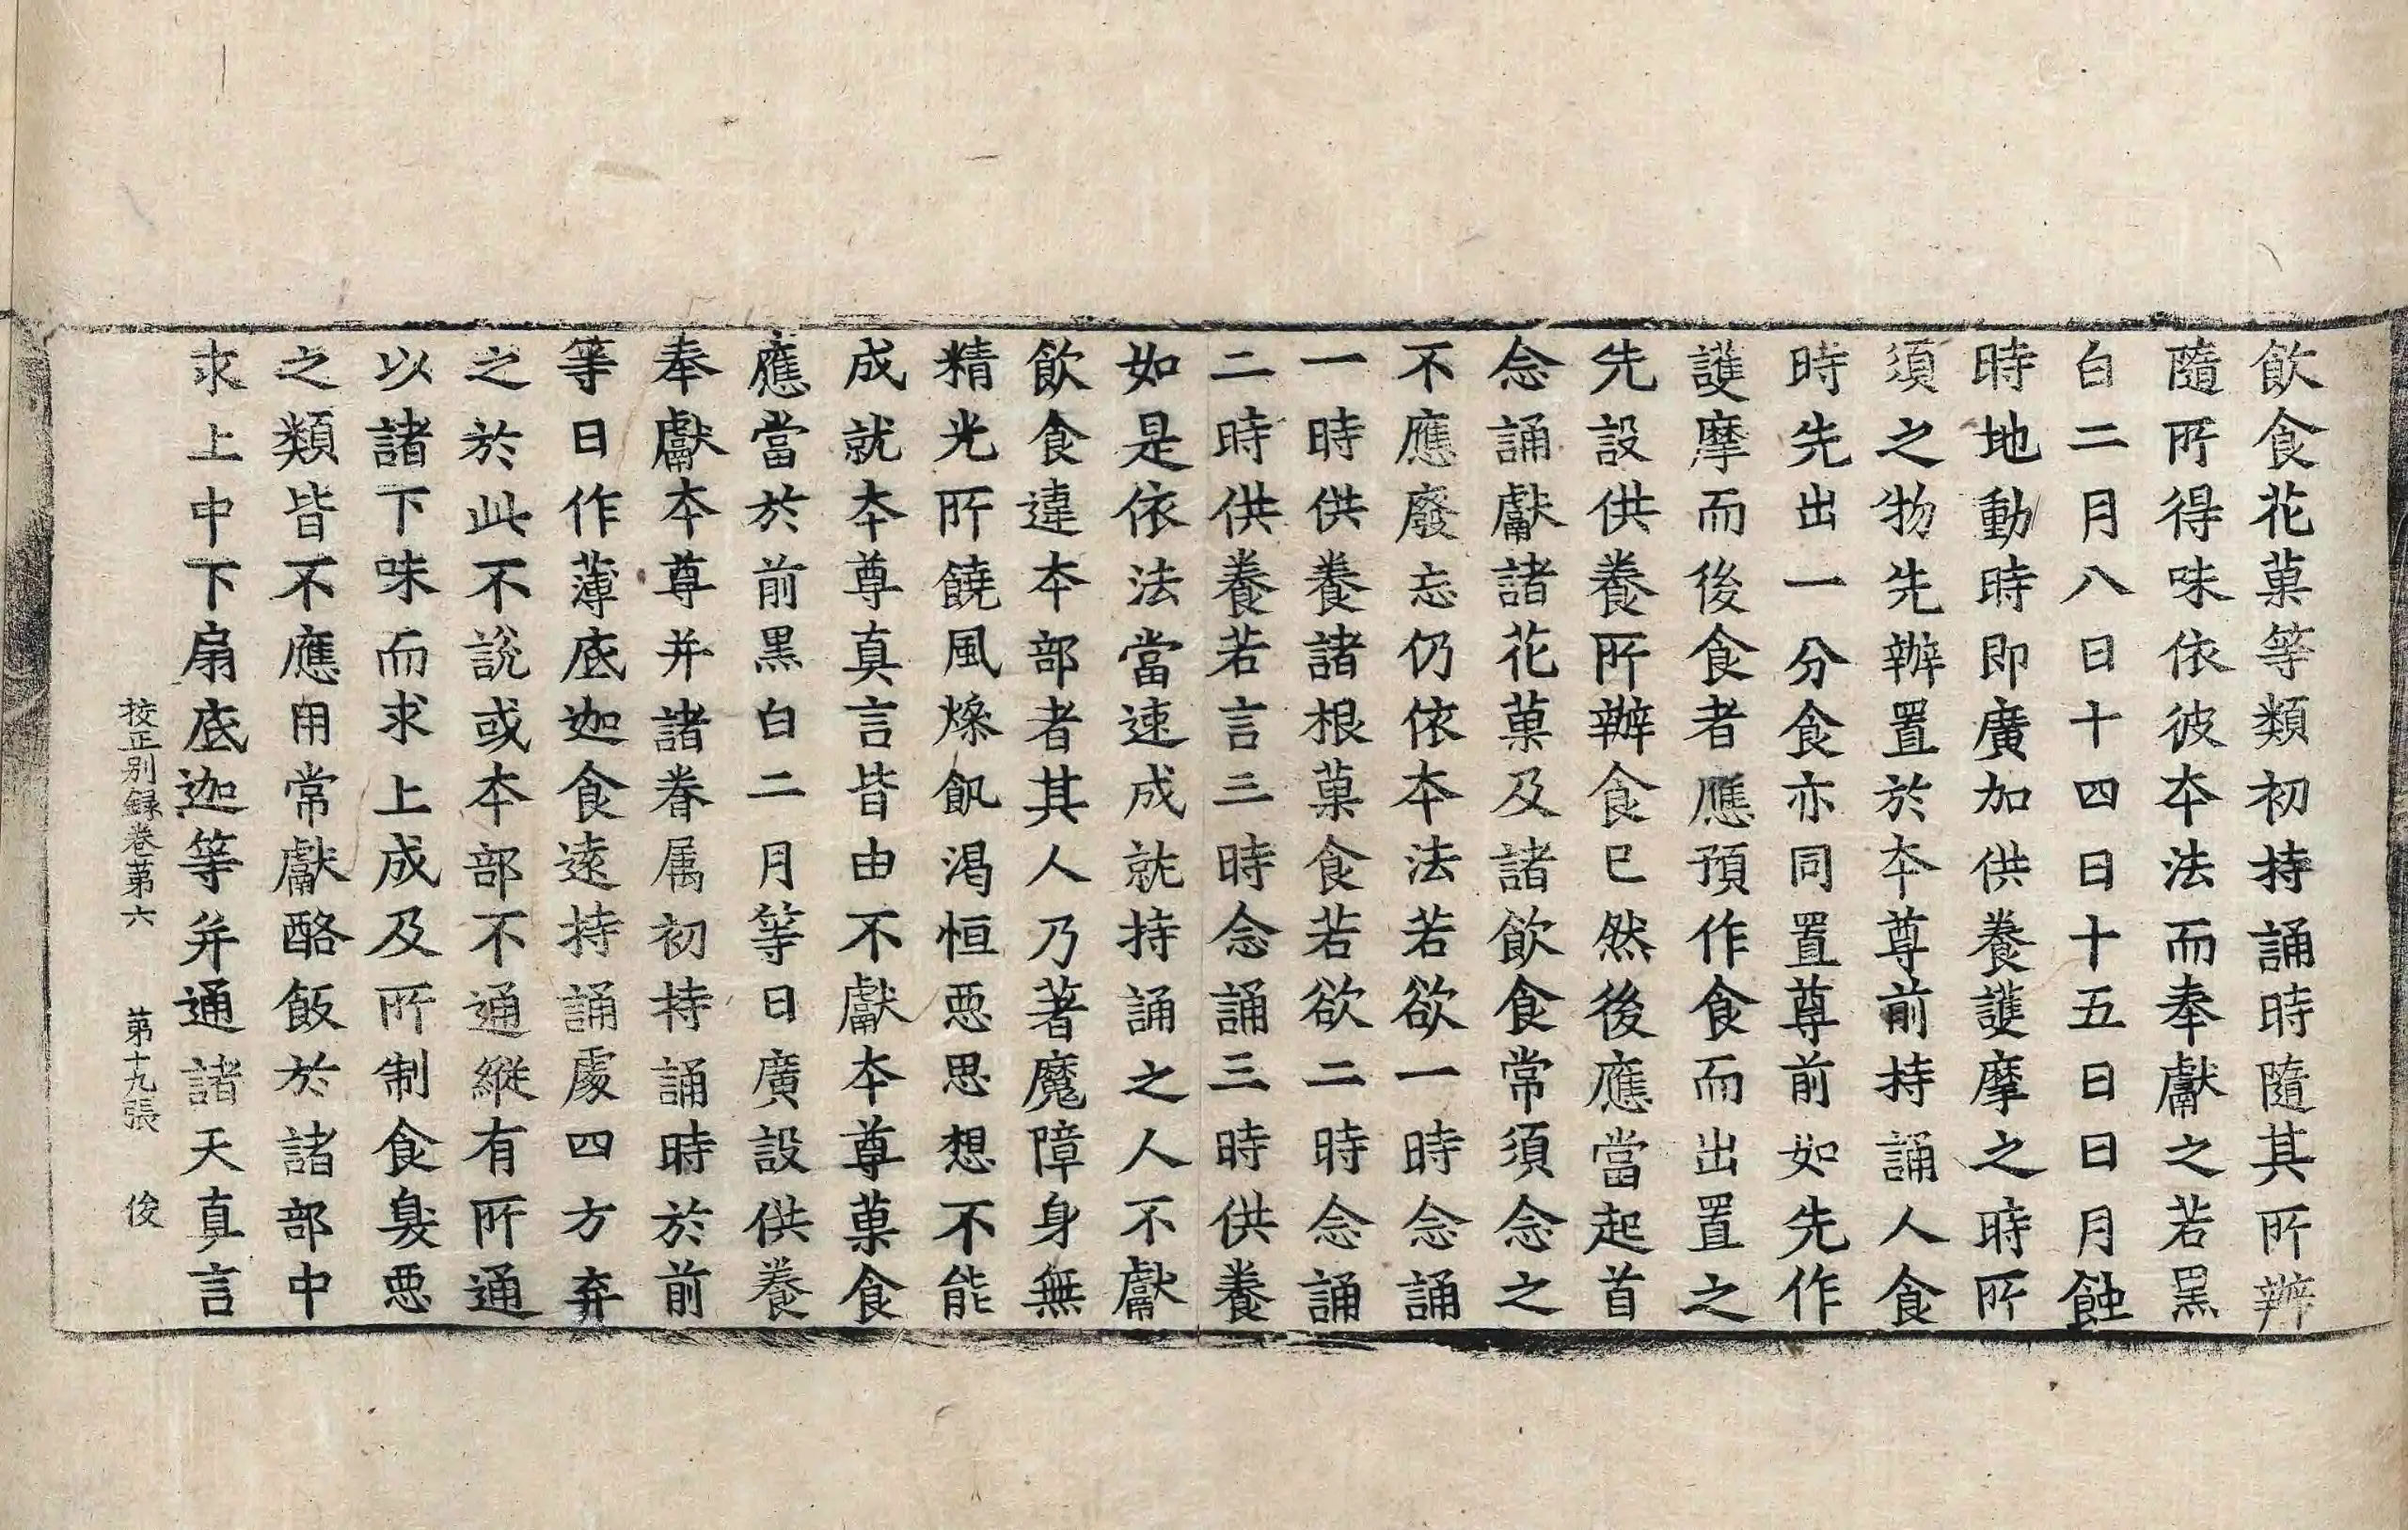 飮食花菓等類初持誦時隨其所辦
隨所得味依彼本法而奉獻之若黑
白二月八日十四日十五日日月蝕
時地動時即廣加供養護摩之時所
須之物先辦置於本尊前持誦人食
時先出一分食亦同置尊前如先作
護摩而後食者應預作食而出置之
先設供養所辦食已然後應當起首
念誦獻諸花菓及諸飮食常須念之
不應廢忘仍依本法若欲一時念誦
一時供養諸根菓食若欲二時念誦
二時供養若言三時念誦三時供養
如是依法當速成就持誦之人不獻
飮食違本部者其人乃著魔障身無
精光所饒風燥飢渴恒惡思想不能
成就本尊真言皆由不獻本尊菓食
應當於前黑白二月等日廣設供養
奉獻本尊并諸眷属初持誦時於前
等日作薄底迦食遠持誦處四方弃
之於此不說或本部不通縱有所通
以諸下味而求上成及所制食臭惡
之類皆不應用常獻酪飯於諸部中
求上中下扇底迦等并通諸天真言
挍正別録卷苐六 苐十九張 俊